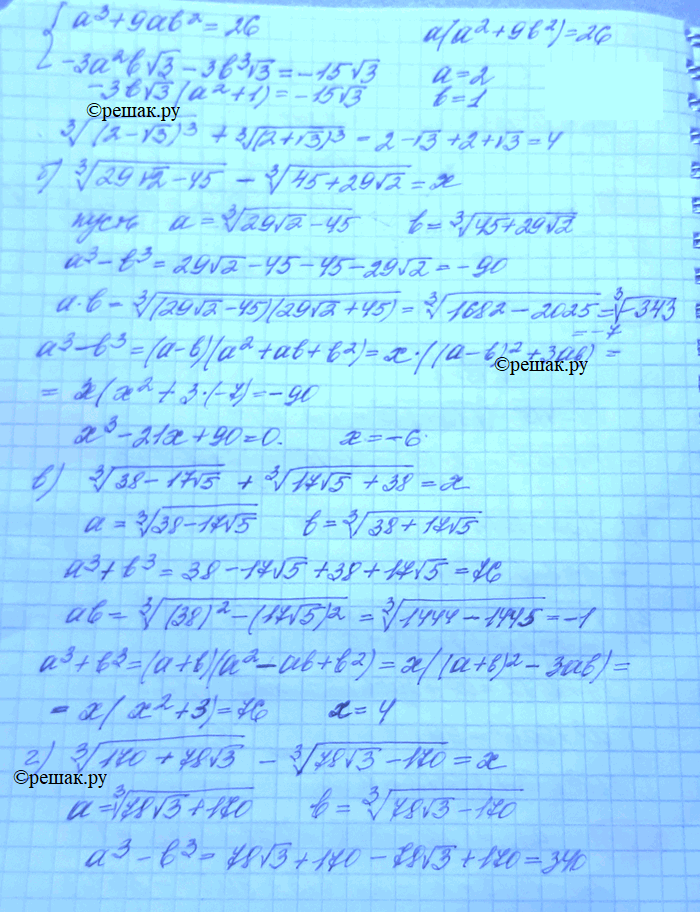 { a³+9ab²=26     a(a²+9b²)=26
-3a²b√3-3b³√3=-15√3     a=2
-3b√3(a²+1)=-15√3     b=1
©решак.ру
∛((2-√3)³) + ∛((2+√3)³) = 2-√3+2+√3=4
б) ∛(29√2-45) - ∛(45+29√2) = x
пусть a=∛(29√2-45)     b=∛(45+29√2)
a³-b³=29√2-45-45-29√2=-90
a·b=∛((29√2-45)(29√2+45))=∛(1682-2025)=∛(-343)
=-7
a³-b³=(a-b)(a²+ab+b²)=x·((a-b)²+3ab)=
©решак.ру
=x(x²+3·(-7)=-90
x³-21x+90=0.     x=-6.
в) ∛(38-17√5) + ∛(17√5+38) = x
a=∛(38-17√5)     b=∛(38+17√5)
a³+b³=38-17√5+38+17√5=76
ab=∛((38)²-(17√5)²)=∛(1444-1445)=-1
a³+b³=(a+b)(a²-ab+b²)=x((a+b)²-3ab)=
=x(x²+3)=76     x=4
г) ∛(170+78√3) - ∛(78√3-170)=x
©решак.ру
a=∛(78√3+170)     b=∛(78√3-170)
a³-b³=78√3+170-78√3+170=340